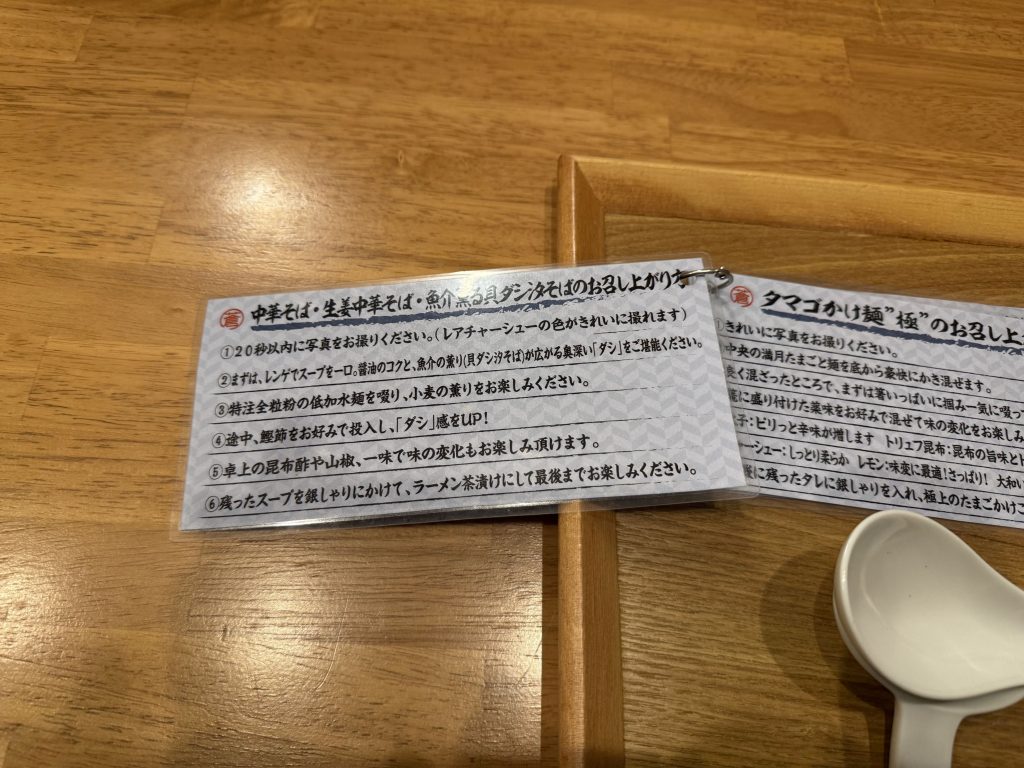 蒼 中華そば・生姜中華そば・魚介薫る貝ダシ汐そばのお召し上がり方
①20秒以内に写真をお撮りください。(レアチャーシューの色がきれいに撮れます)
②まずは、レンゲでスープを一口。醤油のコクと、魚介の薫り(貝ダシ汐そば)が広がる奥深い「ダシ」をご堪能ください。
③特注全粒粉の低加水麺を啜り、小麦の薫りをお楽しみください。
④途中、鰹節をお好みで投入し、「ダシ」感をUP!
⑤卓上の昆布酢や山椒、一味で味の変化もお楽しみ頂けます。
⑥残ったスープを銀しゃりにかけて、ラーメン茶漬けにして最後までお楽しみください。
蒼 タマゴかけ麺"極"のお召し上
①きれいに写真をお撮りください。
中央の満月たまごと麺を底から豪快にかき混ぜます。
良く混ざったところで、まずは箸いっぱいに掴み一気に啜っ
に盛り付けた薬味をお好みで混ぜて味の変化をお楽しみ
子:ピリっと辛味が増します トリュフ昆布:昆布の旨味と
ーシュー:しっとり柔らか レモン:味変に最適!さっぱり! 大和い
に残ったタレに銀しゃりを入れ、極上のたまごかけご